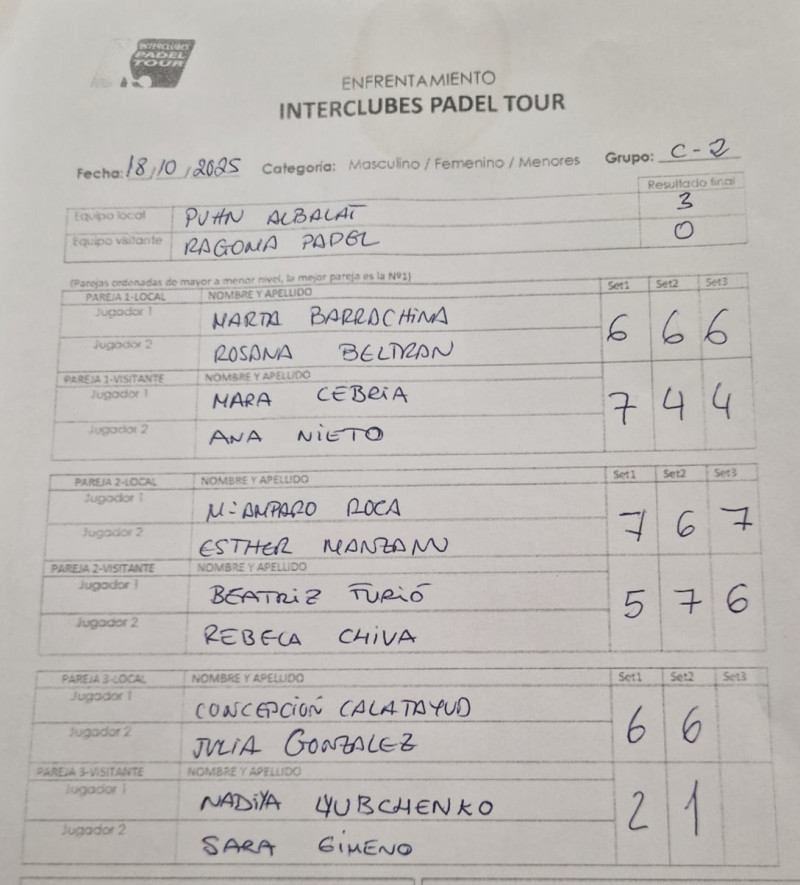 INTERCLUBES
PADEL
TOUR
ENFRENTAMIENTO
INTERCLUBES PADEL TOUR
Fecha: 18/10/2025 Categoría: Masculino / Femenino / Menores Grupo: C-2
Resultado final
Equipo local PUHN ALBALAT 3
Equipo visitante RAGOMA PADEL 0
(Parejas ordenadas de mayor a menor nivel, la mejor pareja es la Nº1)
PAREJA 1-LOCAL NOMBRE Y APELLIDO Set1 Set2 Set3
Jugador 1 MARTA BARRACHINA
6 6 6
Jugador 2 ROSANA BELTRAN
PAREJA 1-VISITANTE NOMBRE Y APELLIDO
Jugador 1 MARA CEBRIA
7 4 4
Jugador 2 ANA NIETO
PAREJA 2-LOCAL NOMBRE Y APELLIDO Set1 Set2 Set3
Jugador 1 Mª AMPARO ROCA
7 6 7
Jugador 2 ESTHER MANZANO
PAREJA 2-VISITANTE NOMBRE Y APELLIDO
Jugador 1 BEATRIZ TURIÓ
5 7 6
Jugador 2 REBECA CHIVA
PAREJA 3-LOCAL NOMBRE Y APELLIDO Set1 Set2 Set3
Jugador 1 CONCEPCIÓN CALATAYUD
6 6
Jugador 2 JULIA GONZALEZ
PAREJA 3-VISITANTE NOMBRE Y APELLIDO
Jugador 1 NADIYA LYUBCHENKO
2 1
Jugador 2 SARA GIMENO